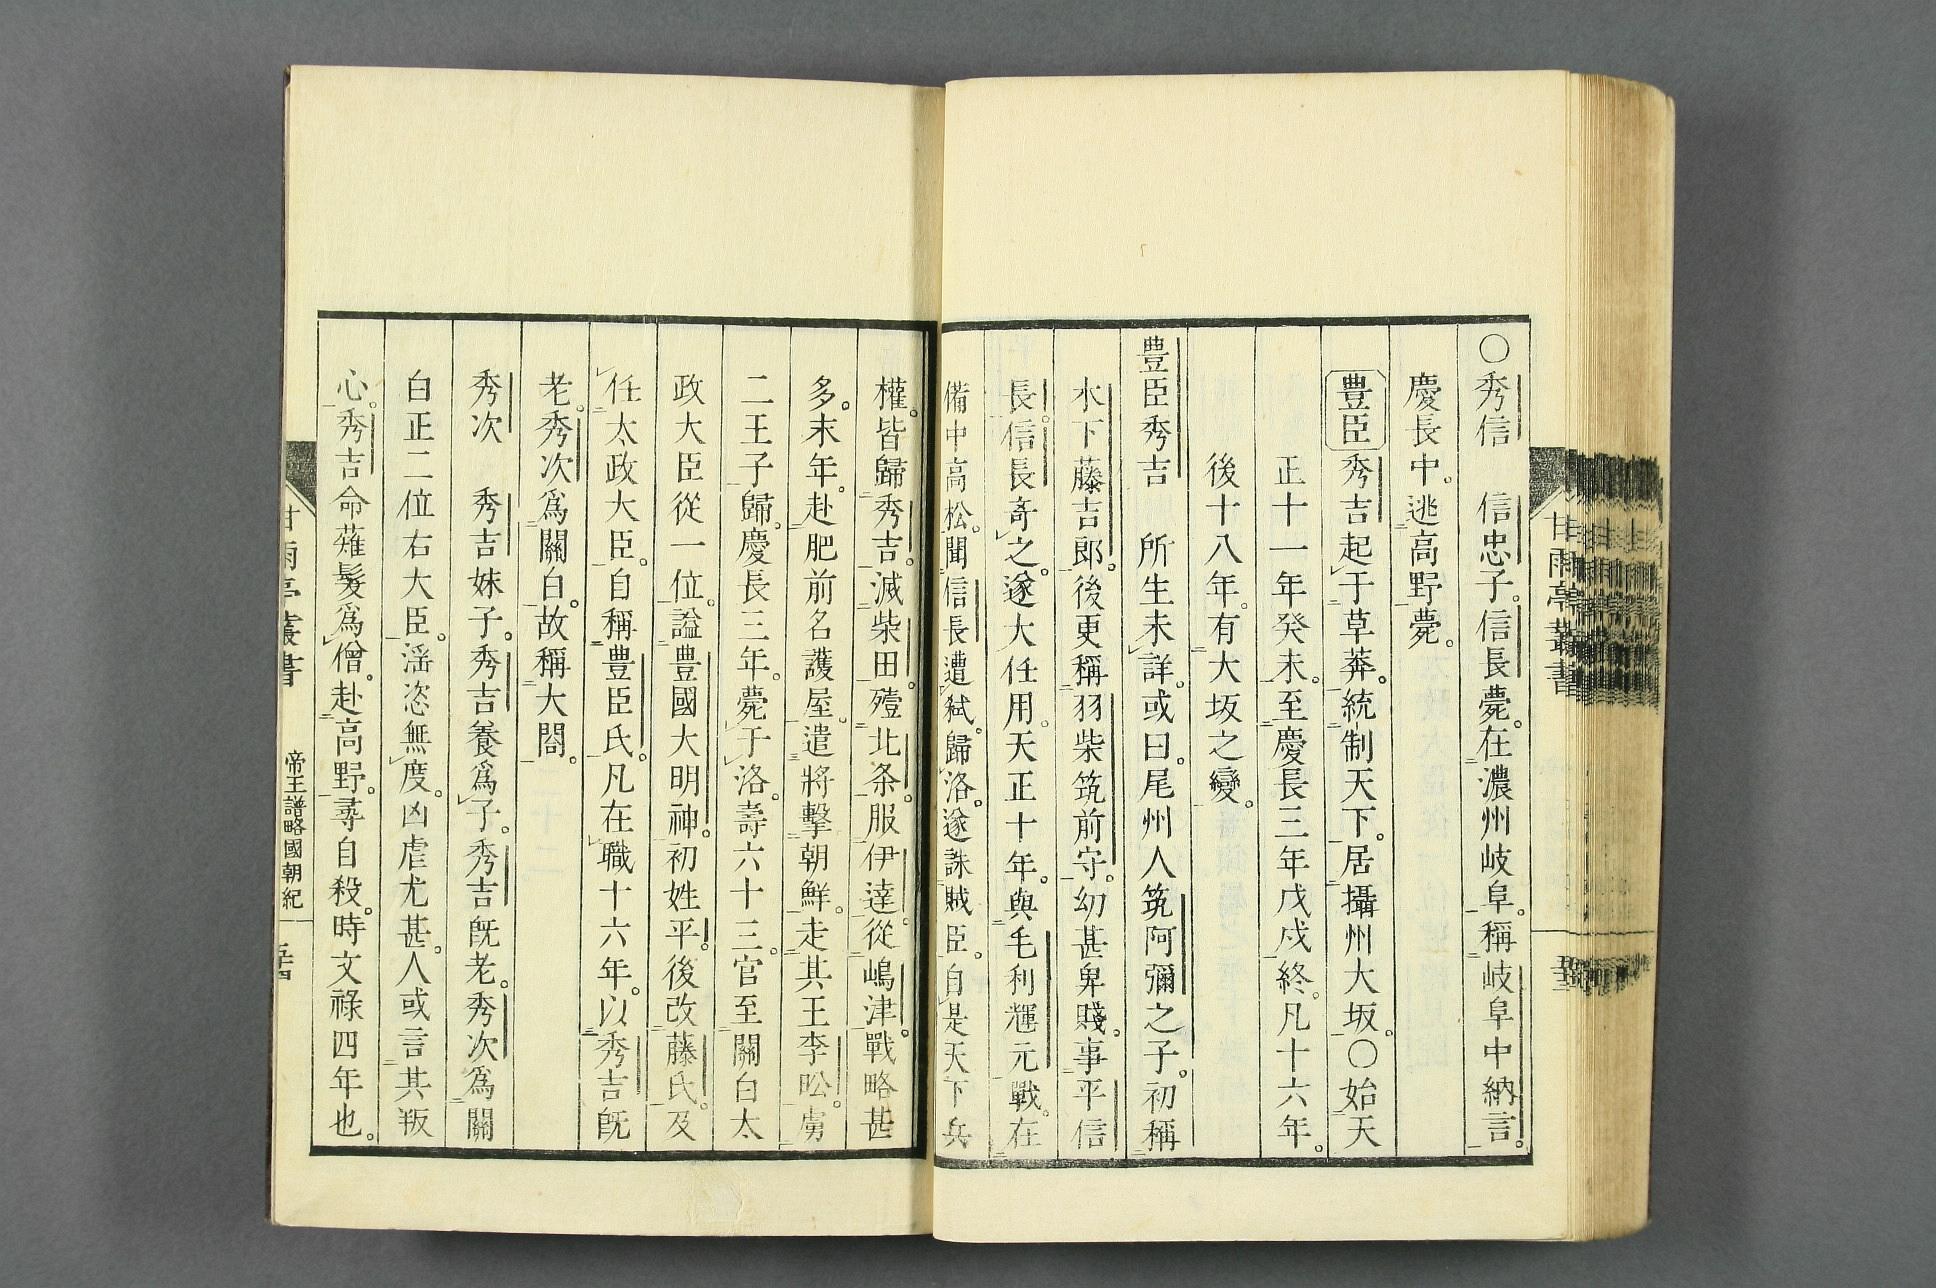 ○秀信　信忠子。信長薨。在濃州岐阜。稱岐阜中納言。
慶長中。逃高野薨。
豊臣秀吉起于草莽。統制天下。居攝州大坂。○始天
正十一年癸未。至慶長三年戊戌終。凡十六年。
後十八年。有大坂之變。
豊臣秀吉　所生未詳。或曰。尾州人筑阿彌之子。初稱
木下藤吉郎。後更稱羽柴筑前守。幼甚卑賤。事平信
長。信長奇之。遂大任用。天正十年。與毛利輝元戰。在
備中高松。聞信長遭弑。歸洛。遂誅賊臣。自是天下兵
權。皆歸秀吉。滅柴田。殪北条。服伊達。從嶋津。戰略甚
多。末年。赴肥前名護屋。遣將擊朝鮮。走其王李昖。虜
二王子歸。慶長三年。薨于洛。壽六十三。官至關白太
政大臣從一位。謚豊國大明神。初姓平。後改藤氏。及
任太政大臣。自稱豊臣氏。凡在職十六年。以秀吉既
老。秀次爲關白。故稱大閤。
秀次　秀吉妹子。秀吉養爲子。秀吉既老。秀次爲關
白正二位右大臣。淫恣無度。凶虐尤甚。人或言其叛
心。秀吉命薙髮爲僧。赴高野。尋自殺。時文祿四年也。
甘雨亭叢書
帝王譜略國朝紀
甘雨亭叢書